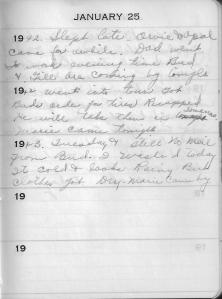 JANUARY 25
1942. Slept late. Orvie Opal
came for awhile. Dad went
to work evening time Bud
& Till are coming by tonight
19 went into town Got
Buds order for tires Recapped
He will take them in tomorrow
Marie came tonight
1943. Tuesday & Still No Mail
from Bud. I washed today
It cold & looks Rainy Bud
clothes got Dry. Marie came by
19
19